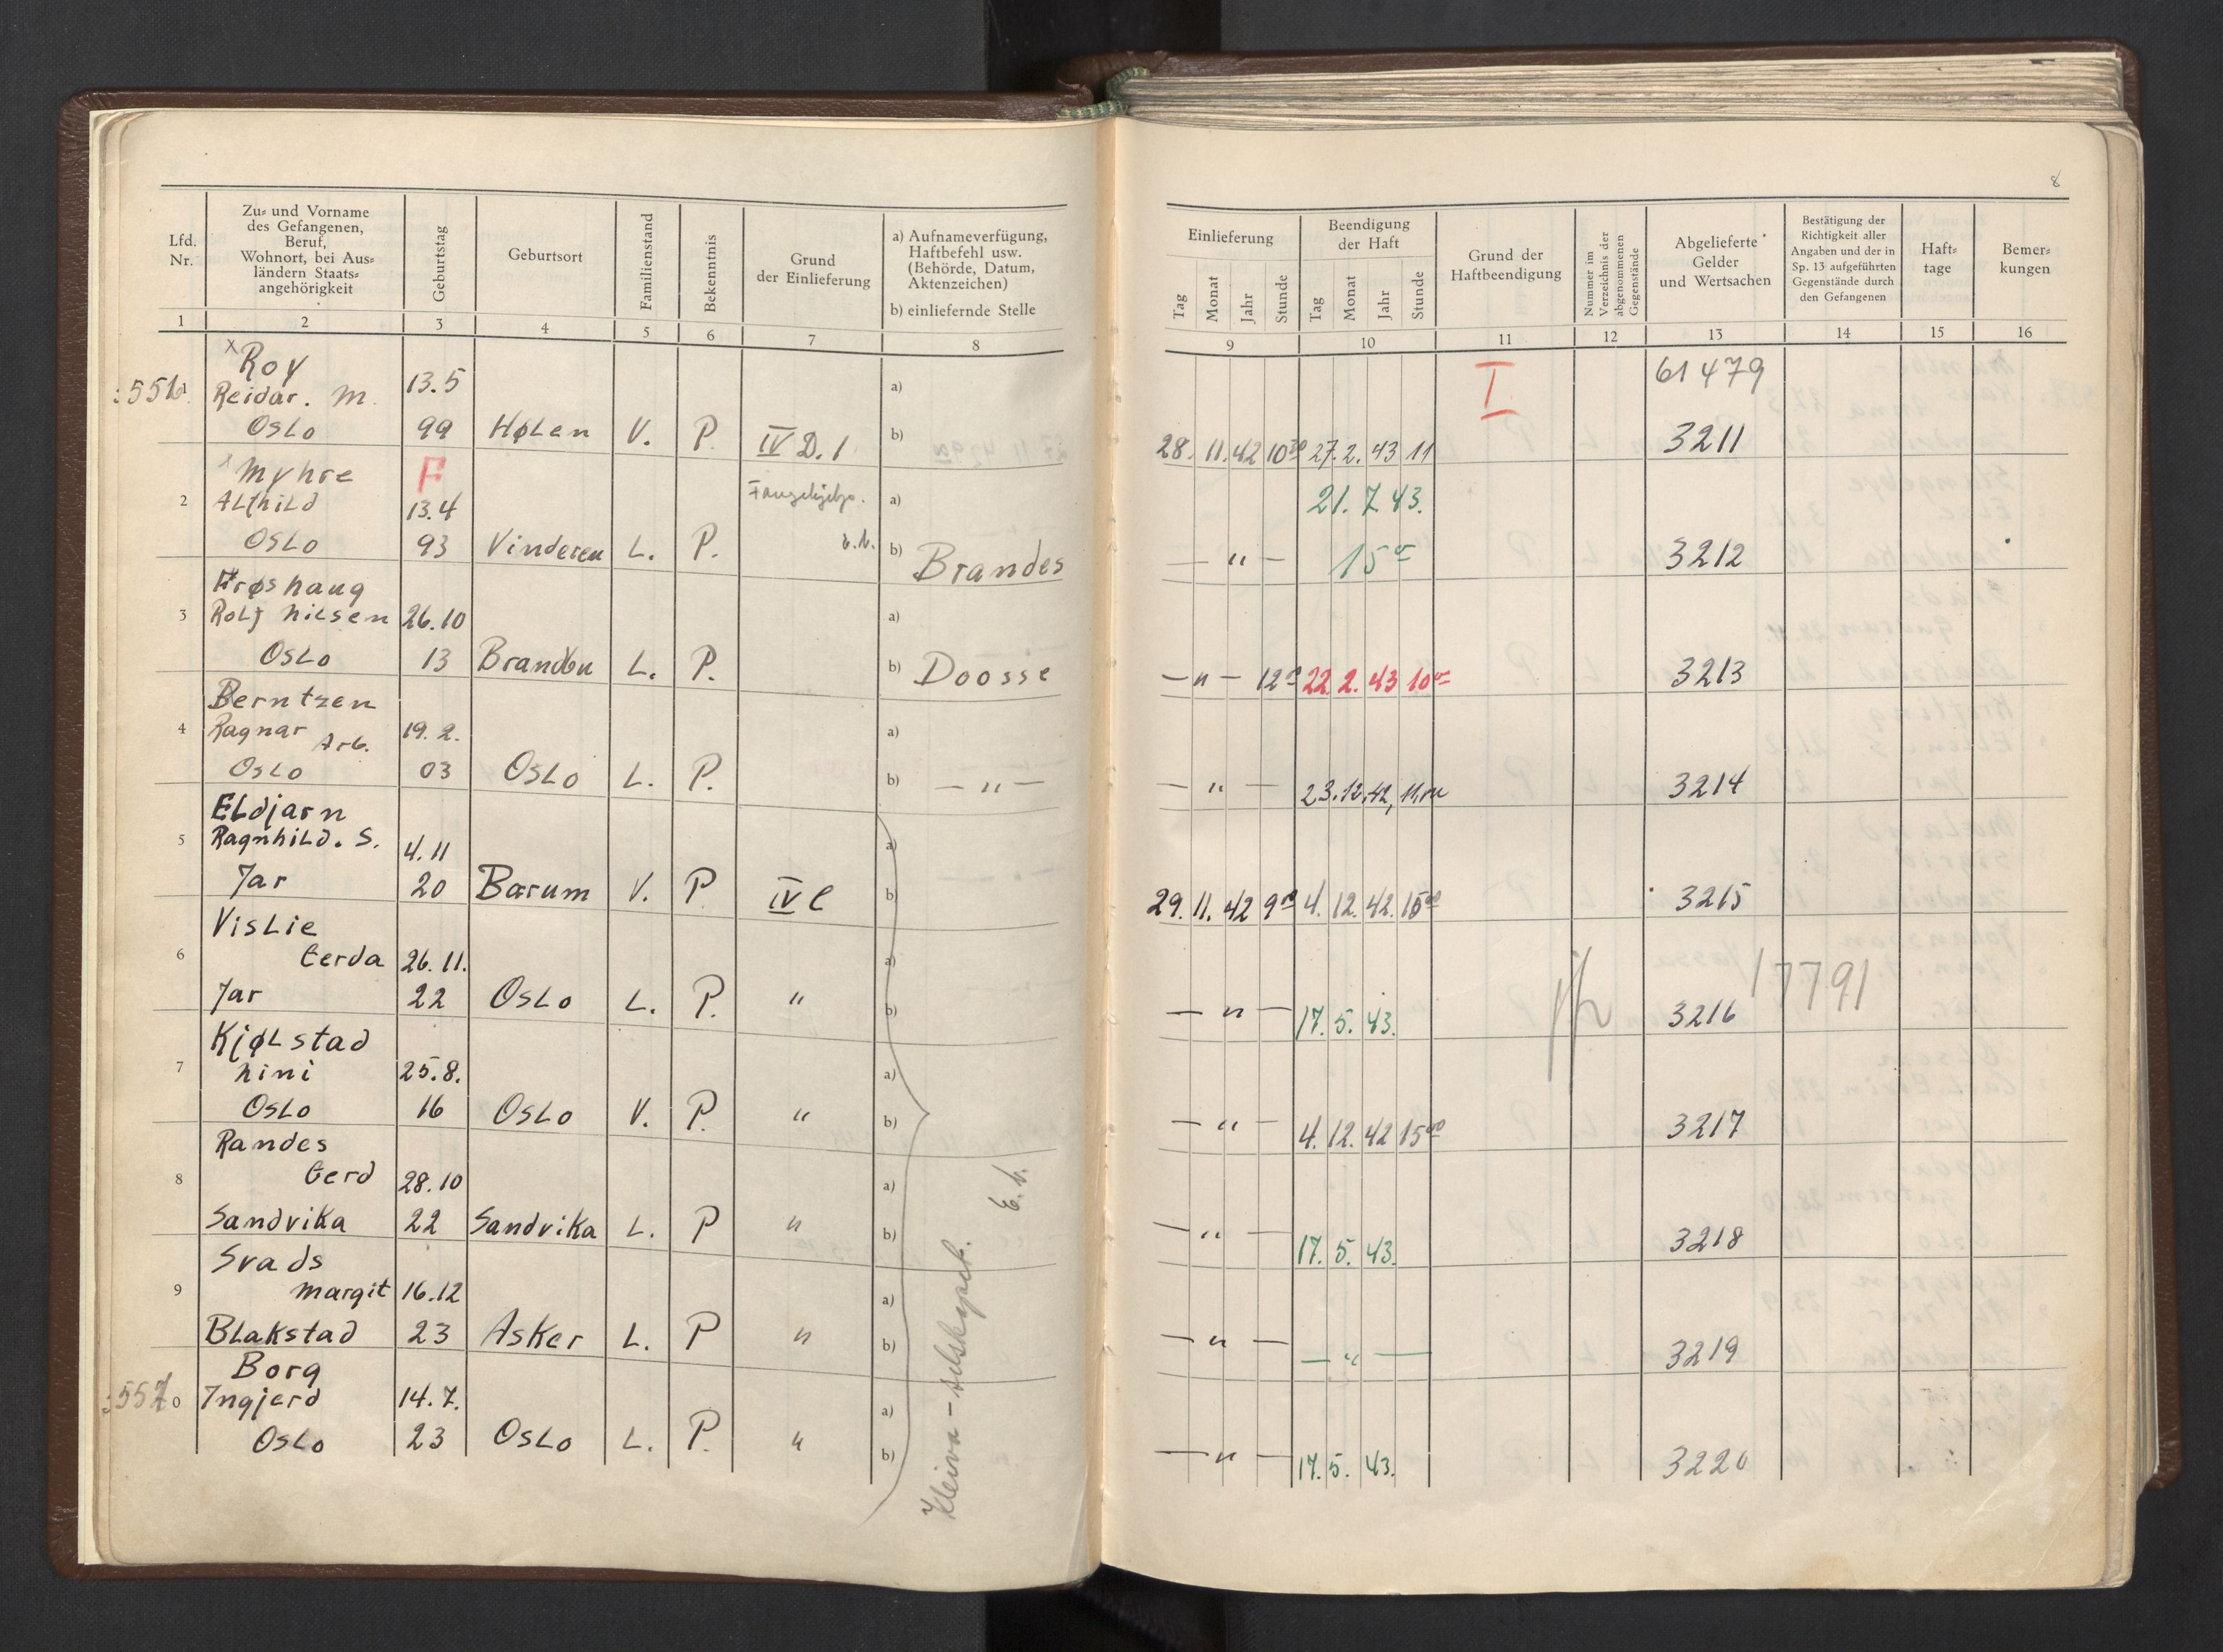 8
Lfd. Nr.
Zu- und Vorname
des Gefangenen,
Beruf,
Wohnort, bei Aus-
ländern Staats-
angehörigkeit
Geburtstag
Geburtsort
Familienstand
Bekenntnis
Grund
der Einlieferung
a) Aufnameverfügung,
Haftbefehl usw.
(Behörde, Datum,
Aktenzeichen)
b) einliefernde Stelle
Einlieferung
Tag Monat Jahr Stunde
Beendigung
der Haft
Tag Monat Jahr Stunde
Grund der
Haftbeendigung
Nummer im
Verzeichnis der
abgenommenen
Gegenstände
Abgelieferte
Gelder
und Wertsachen
Bestätigung der
Richtigkeit aller
Angaben und der in
Sp. 13 aufgeführten
Gegenstände durch
den Gefangenen
Haft-
tage
Bemer-
kungen
1 2 3 4 5 6 7 8 9 10 11 12 13 14 15 16
x Roy I 61479
1 Reidar. M. 13.5 a)
Oslo 99 Hølen V. P. IV D. 1 b) 28. 11. 42 10 30 27. 2. 43 11 3211
x Myhre F
2 Alfhild 13.4 a) 21. 7. 43.
Oslo 93 Vinderen L. P. b) Brandes — " — 15 3212
Frøshaug
3 Rolf Nilsen 26.10 a)
Oslo 13 Brandbu L. P. b) Doosse — " — 12 22. 2. 43 10 3213
Berntzen
4 Ragnar Arb. 19. 2. a)
Oslo 03 Oslo L. P. b) — " — — " — 23. 12. 42, 11.00 3214
Eldjarn
5 Ragnhild. S. 4. 11 a)
Jar 20 Bærum V. P IV C b) 29. 11. 42 9 4. 12. 42. 15 00 3215
Vislie
6 Gerda 26. 11. a) 17791
Jar 22 Oslo L. P. " b) — " — 17. 5. 43. 3216
Kjølstad
7 Nini 25. 8. a)
Oslo 16 Oslo V. P. " b) — " — 4. 12. 42 15 00 3217
Randes
8 Gerd 28. 10 a)
Sandvika 22 Sandvika L. P " b) — " — 17. 5. 43. 3218
Svads
9 Margit 16.12 a)
Blakstad 23 Asker L. P " b) — " — — " — 3219
Borg
0 Ingjerd 14. 7. a)
Oslo 23 Oslo L. P. " b) — " — 17. 5. 43. 3220
E. b.